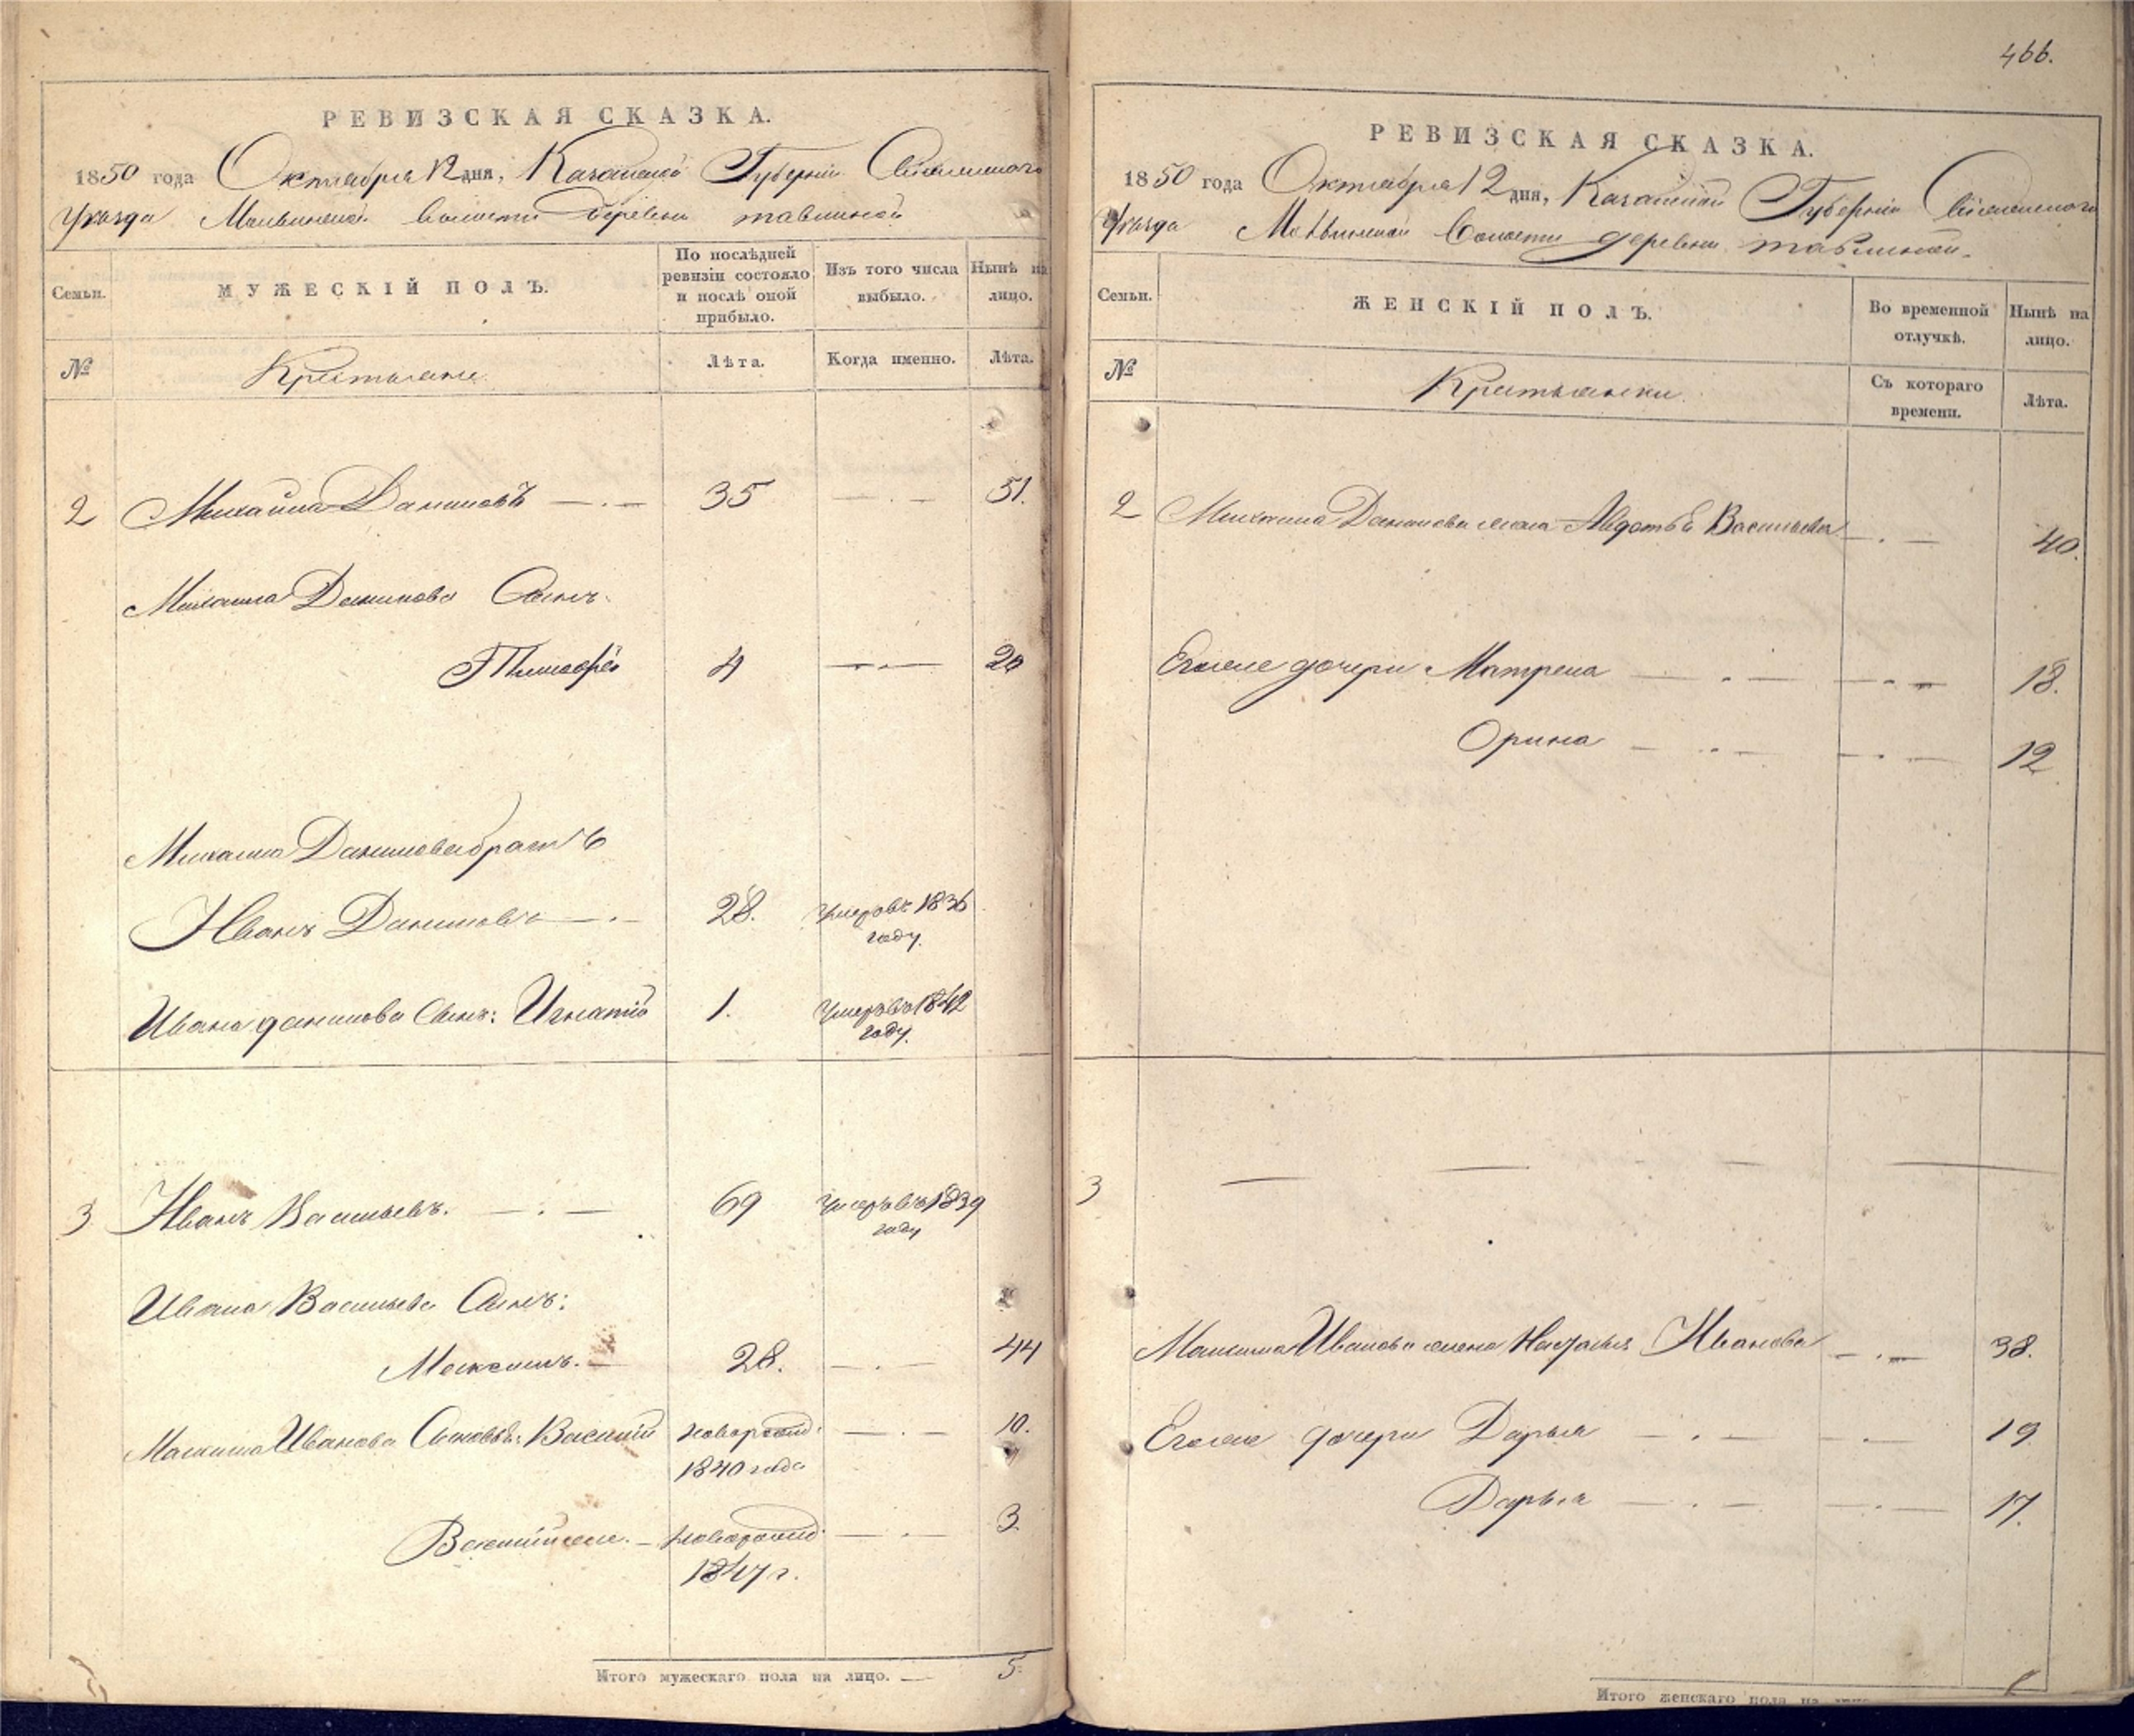 466.
РЕВИЗСКАЯ СКАЗКА.
1850 года Октября 12 дня, Казанской Губернiи
Уезда волости деревни тавлиной
Семьи. МУЖЕСКIЙ ПОЛЪ. По послѣдней ревизiи состояло и послѣ оной прибыло. Изъ того числа выбыло. Нынѣ на лицо.
№ Крестьяне Лѣта. Когда именно. Лѣта.
2 Михайла Даниловъ 35 51.
Михаила Данилова Сынъ:
Тимофей 4 20
Михаила Данилова братъ
Иванъ Даниловъ 28. умеръ въ 1836 году.
Ивана данилова Сынъ: Игнатiй 1. умеръ въ 1842 году.
3 Иванъ Васильевъ. 69 умеръ въ 1839 году
Ивана Васильева Сынъ:
Максимъ. 28. 44
Максима Иванова Сыновья: Василiй новорожд. 1840 года 10.
Василiй новорожд. 1847 г. 3.
Итого мужескаго пола на лицо. 5.
РЕВИЗСКАЯ СКАЗКА.
1850 года Октября 12 дня, Казанской Губернiи
Уезда Волости деревни тавлиной.
Семьи. ЖЕНСКIЙ ПОЛЪ. Во временной отлучкѣ. Нынѣ на лицо.
№ Крестьянки. Съ котораго времени. Лѣта.
2 Михаила Данилова жена Авдотья Васильева 40.
Егоже дочери Матрена 18.
Орина 12
3
Максима Иванова жена Наталья Иванова 38.
Егоже дочери Дарья 19
Дарья 17.
Итого женскаго пола на